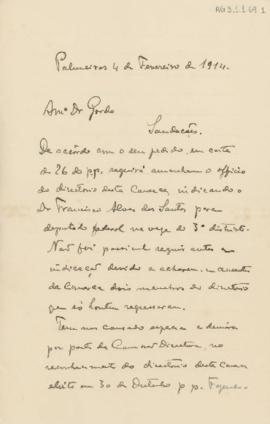 RG 3.1.1.69.1
Palmeiras 4 de Fevereiro de 1914.
Amº Dr Gordo
Saudações.
De accôrdo com o seu pedido, em carta
de 26 do pp., seguirá amanham o officio
do directorio desta Comarca indicando o
Dr Francisco Alves dos Santos para
deputado federal na vaga do 3º districto.
Não foi possivel seguir antes a
indicação devido a acharem-se ausentes
da Comarca dois membros do directorio
que só hontem regressaram.
Tem nos causado espécie a demora
por parte da Commissão Directora, no
reconhecimento do directorio desta Comarca
eleito em 30 de Outubro p p.